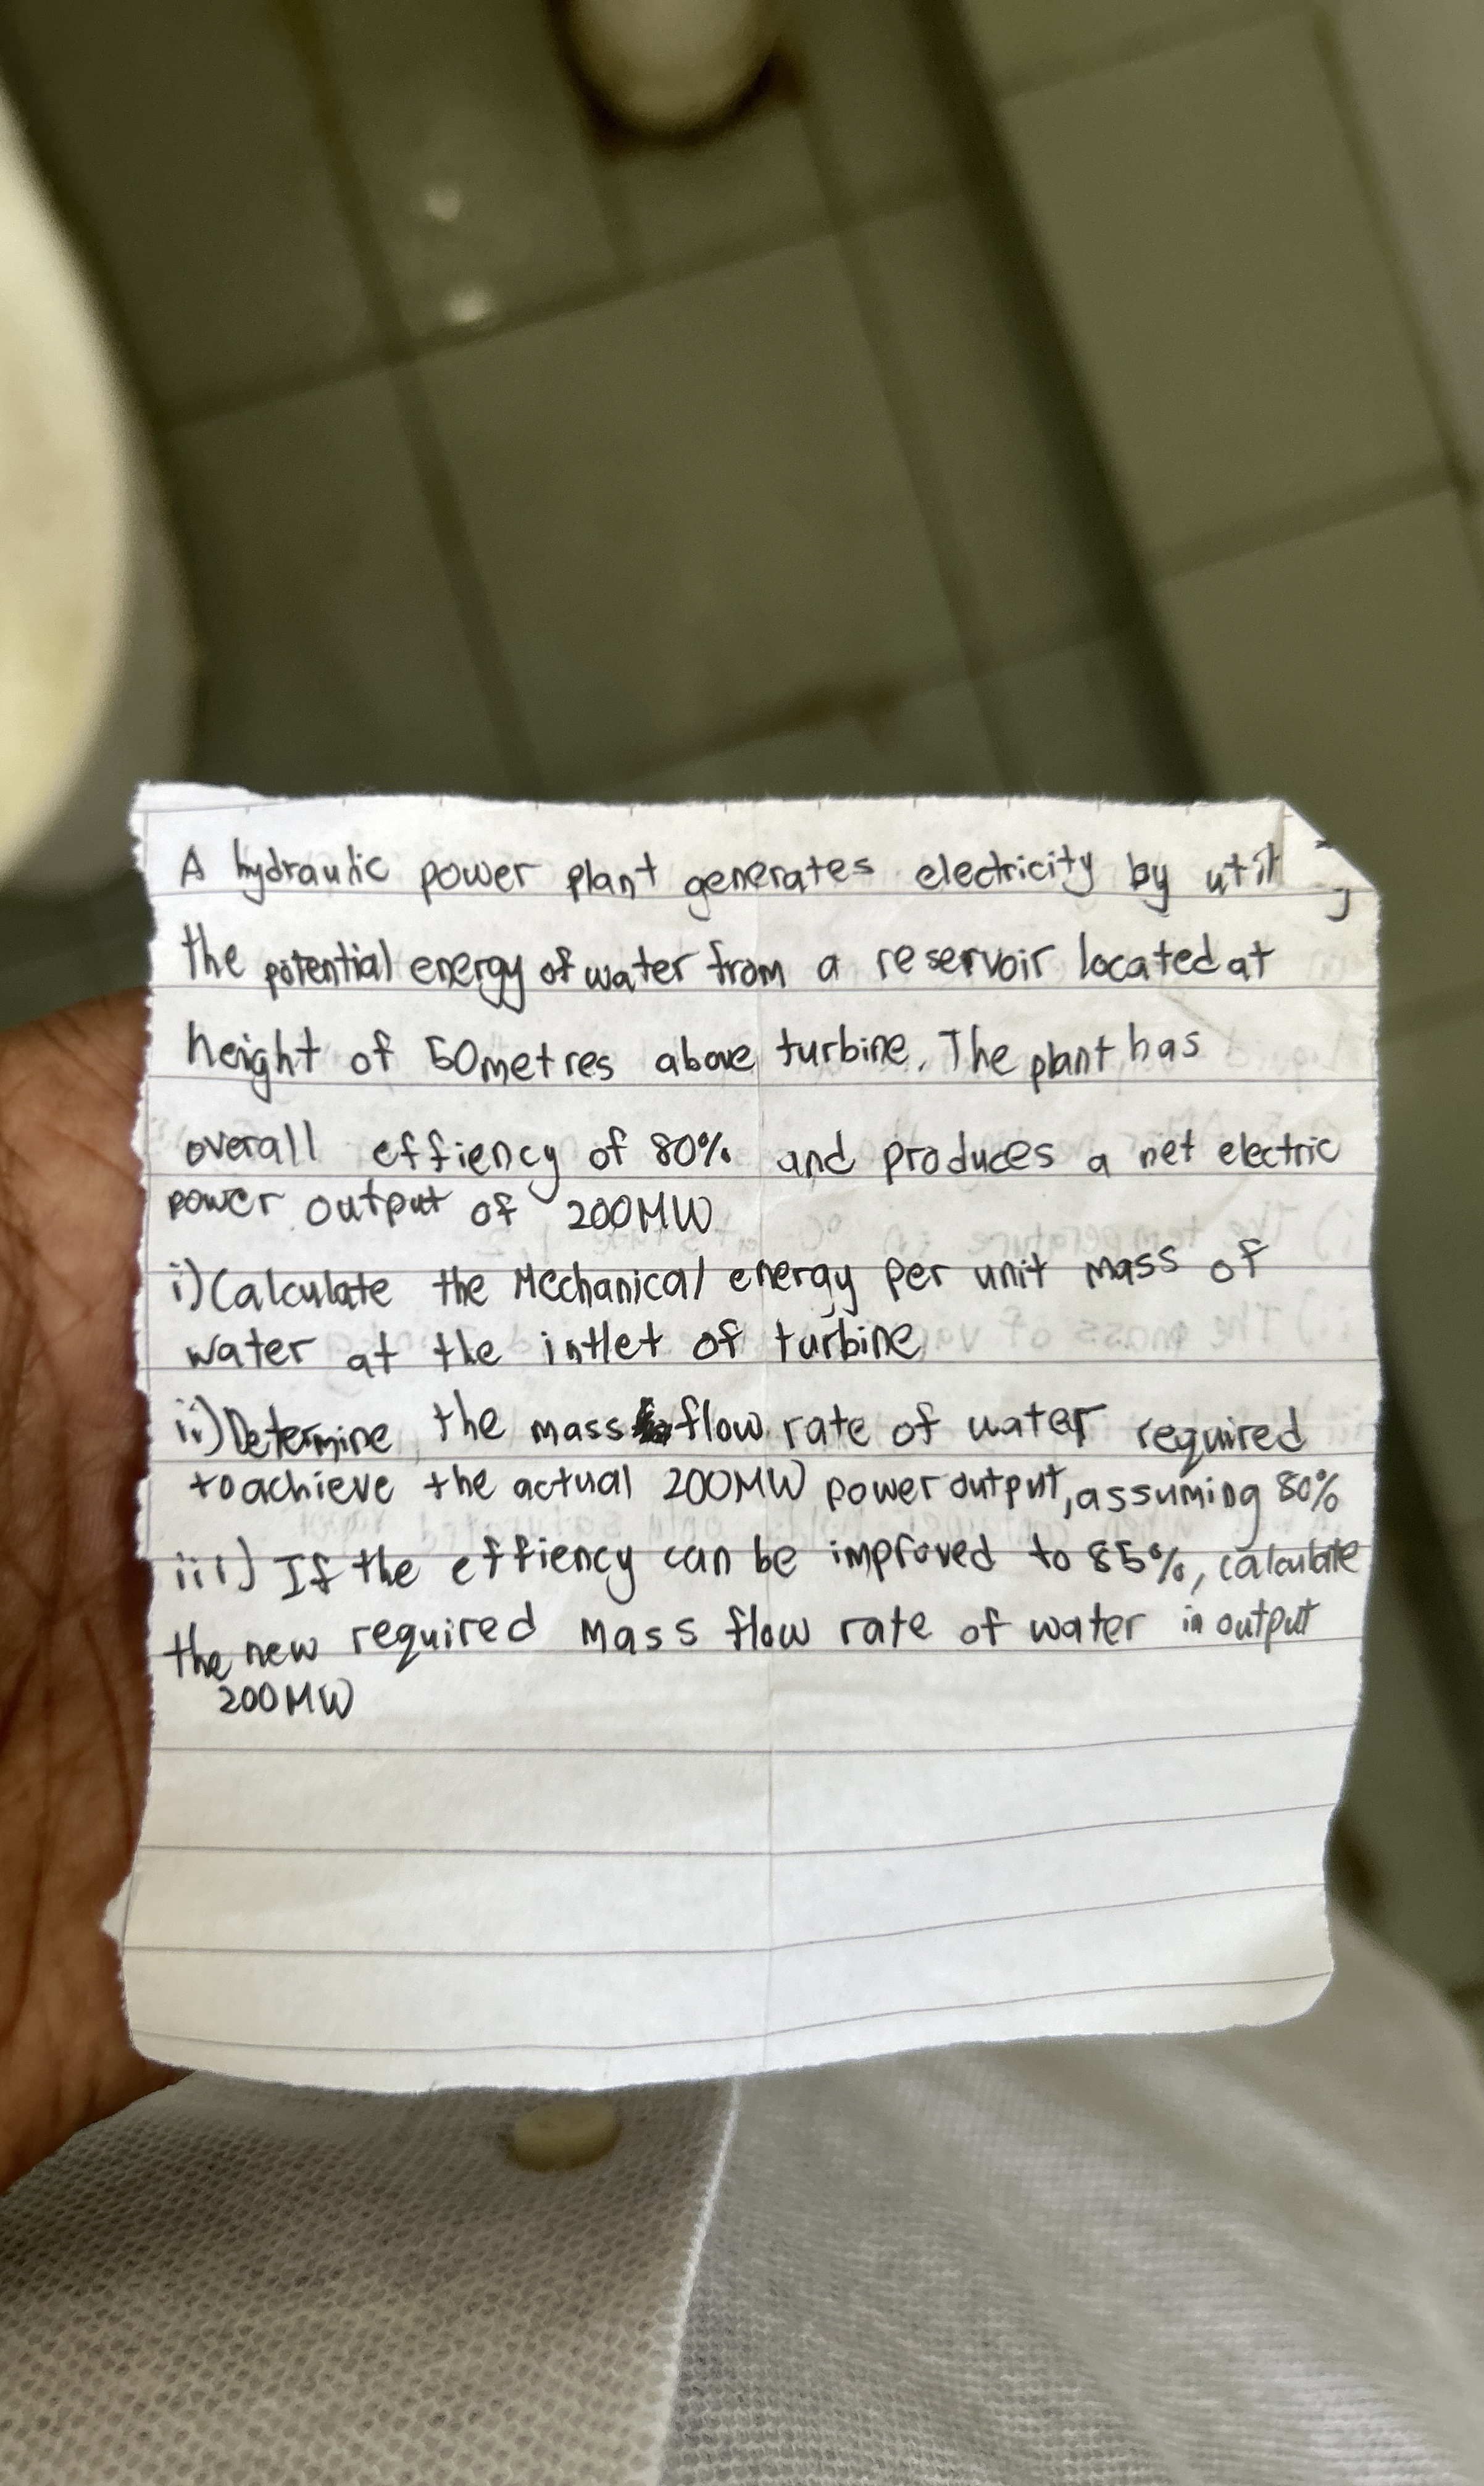 A hydraulic power plant generates electricity by
the potential energy of water from a reservoir located at
height of 50metres above turbine. The plant has
overall effiency of 80% and produces a net electric
power output of 200MW
i) Calculate the Mechanical energy per unit mass of
water at the intlet of turbine
ii) Determine the mass flow rate of water required
to achieve the actual 200MW power output, assuming 80%
iii) If the effiency can be improved to 85%, calculate
the new required Mass flow rate of water in output
200MW